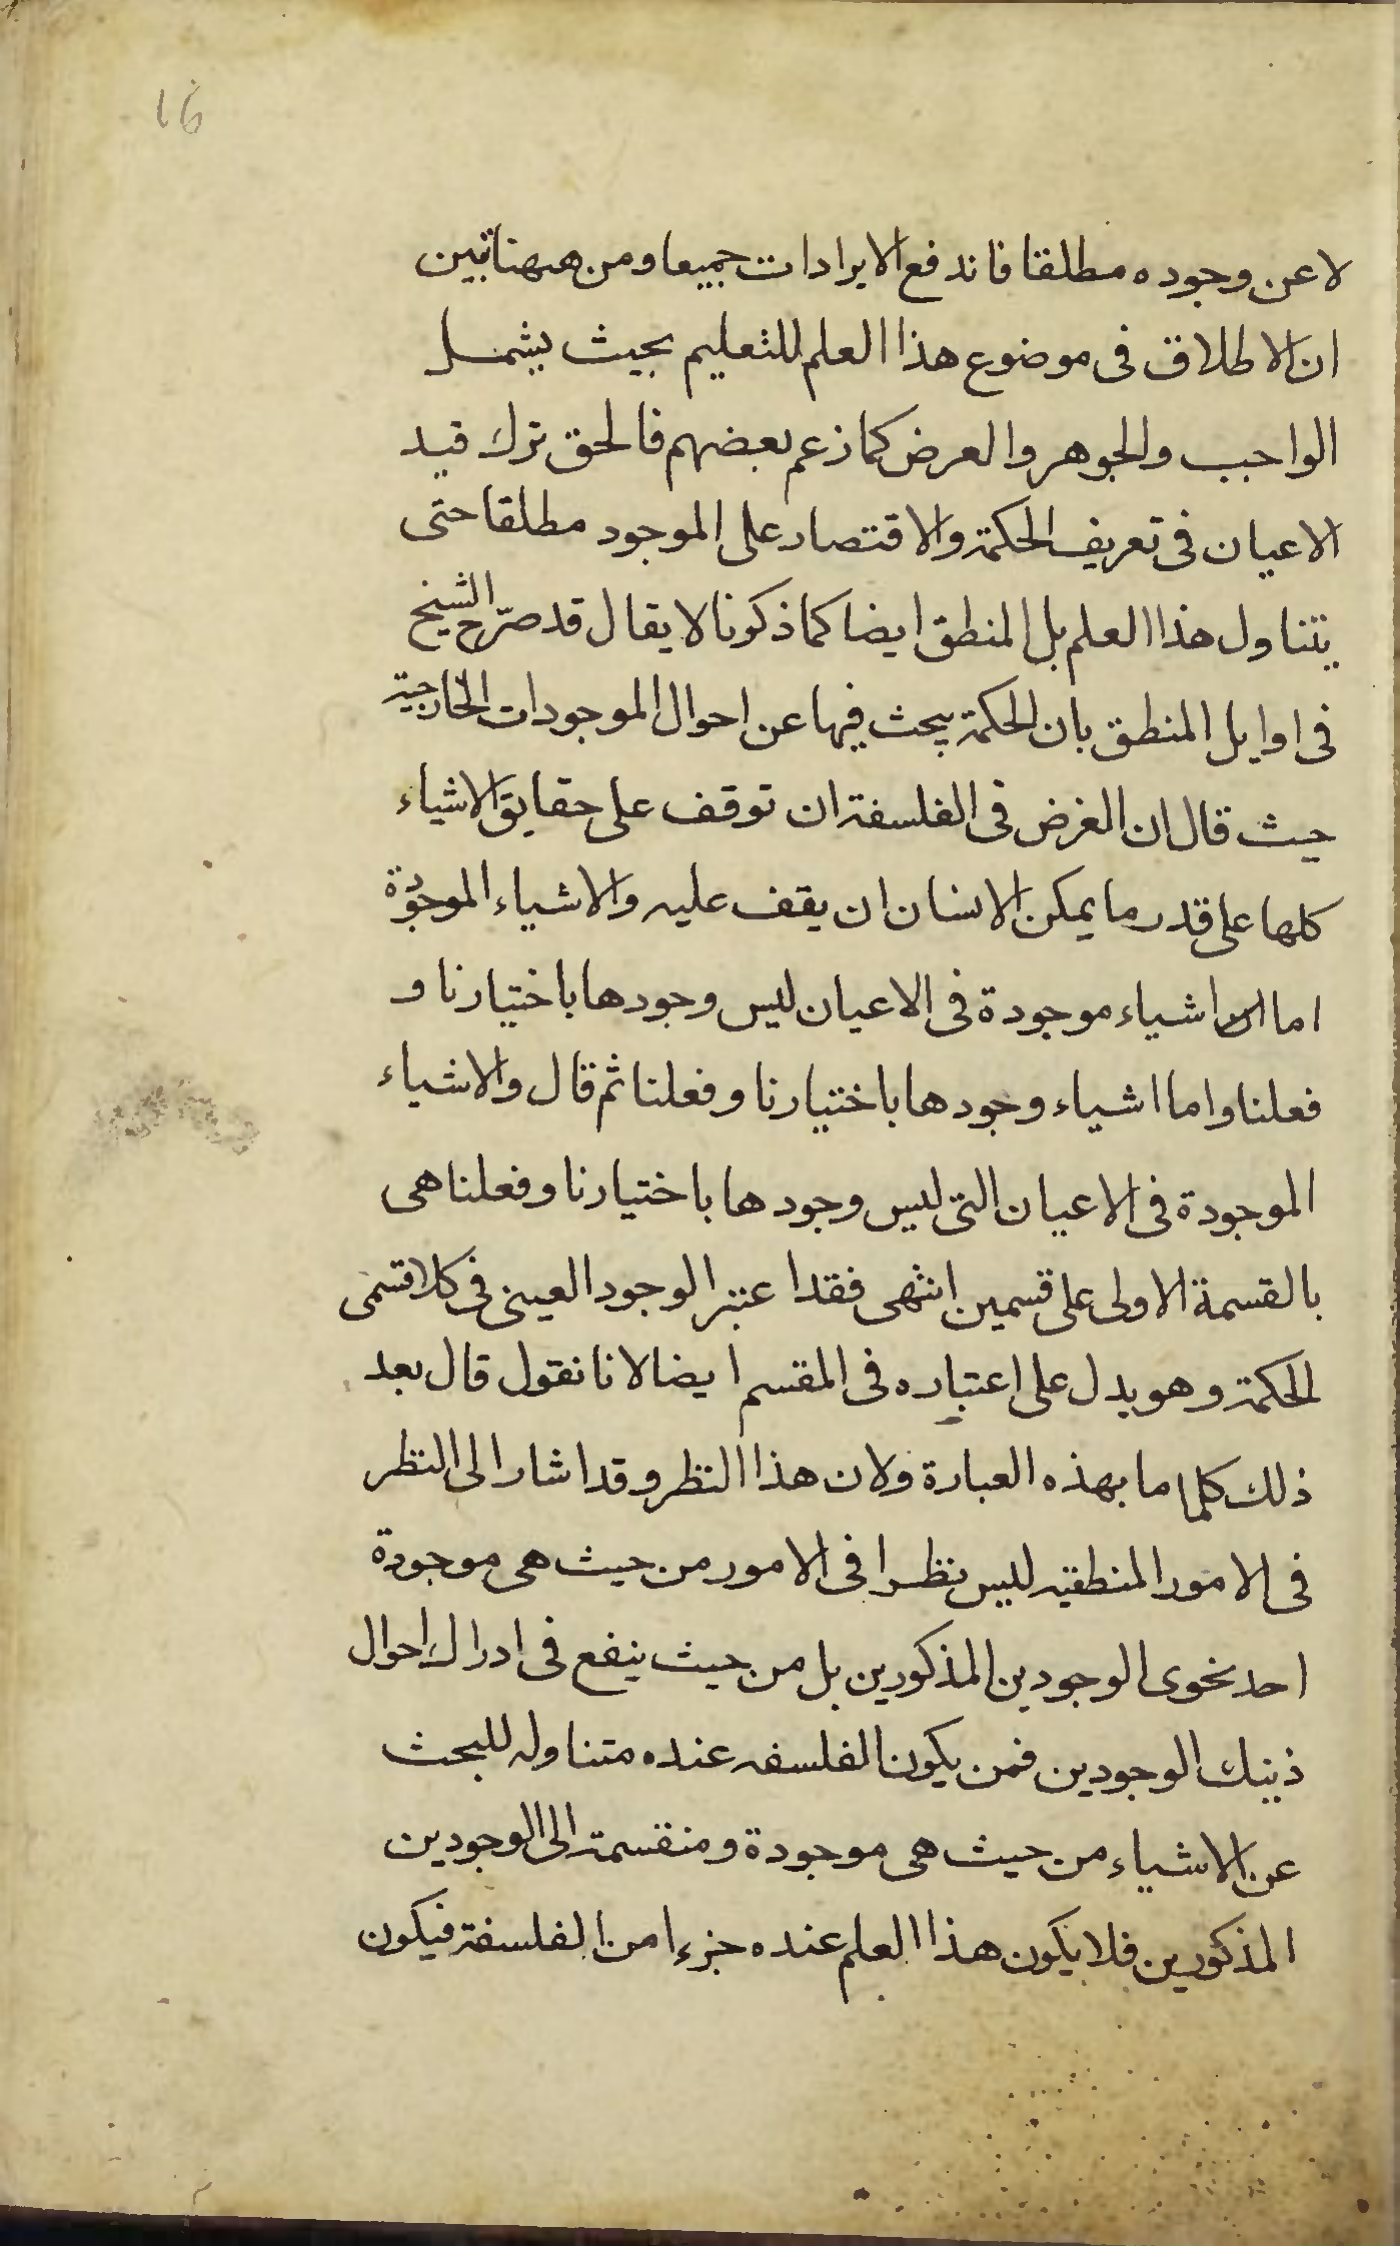 16
لا عن وجوده مطلقا فاندفع الايرادات جميعا ومن ههنا تبين
ان الاطلاق فى موضوع هذا العلم للتعليم بحيث يشمل
الواجب والجوهر والعرض كما زعم بعضهم فالحق ترك قيد
الاعيان فى تعريف الحكمة والاقتصار على الموجود مطلقا حتى
يتناول هذا العلم بل المنطق ايضا كما ذكونا لا يقال قد صرّح الشيخ
فى اوايل المنطق بان الحكمة يبحث فيها عن احوال الموجودات الخارجية
حيث قال ان الغرض فى الفلسفة ان توقف على حقايق الاشياء
كلها على قدر ما يمكن الانسان ان يقف عليه والاشياء الموجودة
اما اشياء موجودة فى الاعيان ليس وجودها باختيارنا و
فعلنا واما اشياء وجودها باختيارنا وفعلنا ثم قال والاشياء
الموجودة فى الاعيان التى ليس وجودها باختيارنا وفعلنا هى
بالقسمة الاولى على قسمين انتهى فقد اعتبر الوجود العينى فى كلا قسمى
الحكمة وهو يدل على اعتباره فى المقسم ايضا لانا نقول قال بعد
ذلك كلاما بهذه العبارة ولان هذا النظر وقد اشار الى النظر
فى الامور المنطقيه ليس نظرا فى الامور من حيث هى موجودة
احد نحوى الوجودين المذكورين بل من حيث ينفع فى ادراك احوال
ذينك الوجودين فمن يكون الفلسفه عنده متناوله للبحث
عن الاشياء من حيث هى موجودة ومنقسمة الى الوجودين
المذكورين فلا يكون هذا العلم عنده جزءا من الفلسفة فيكون